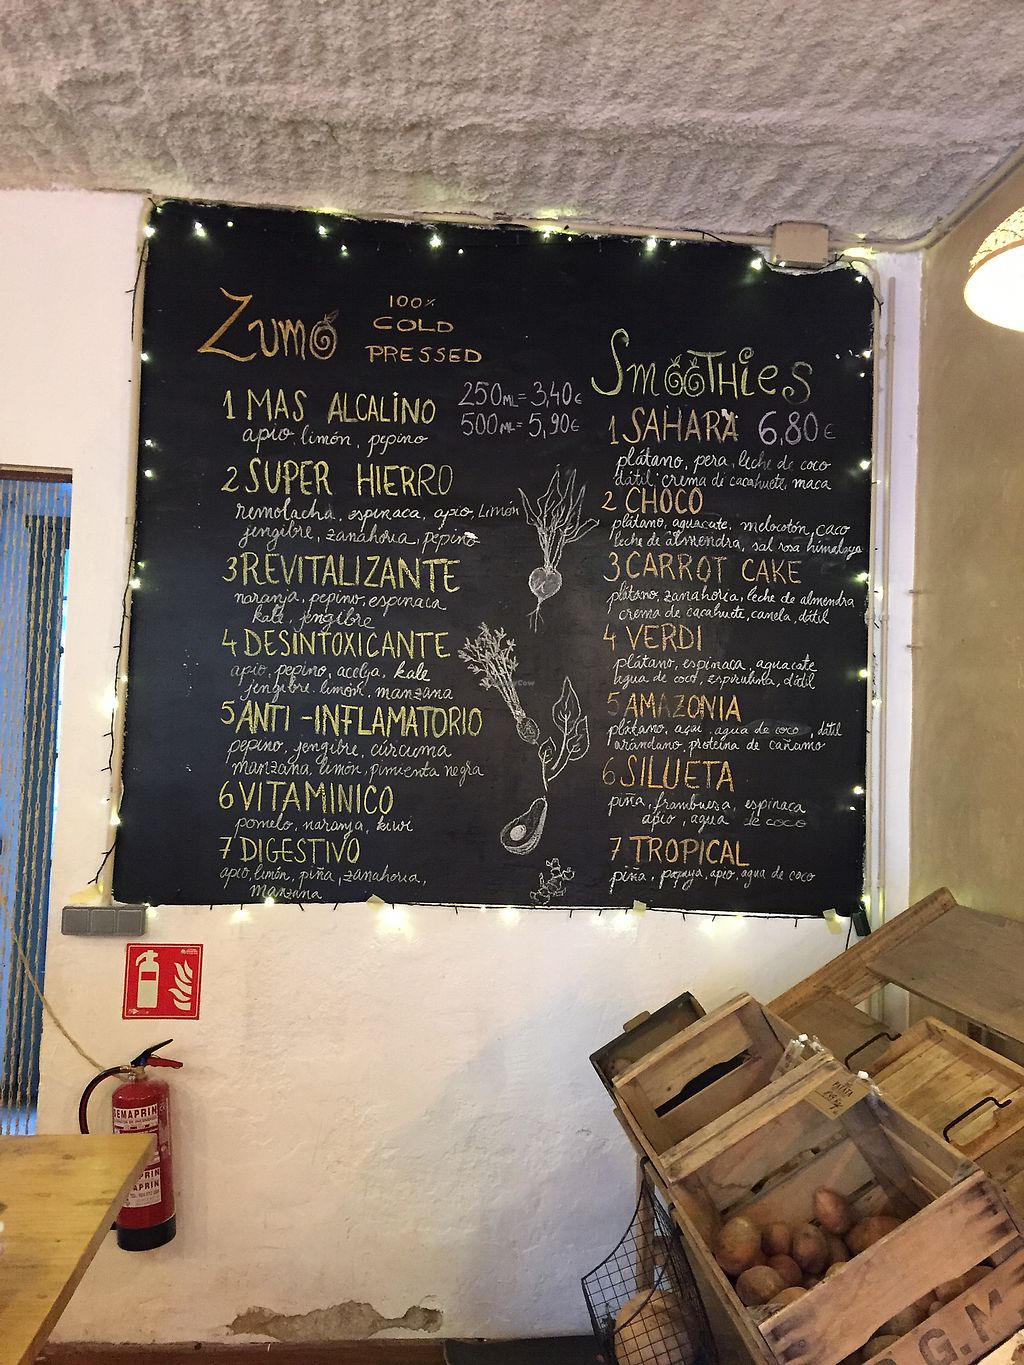 Zumo
100%
COLD
PRESSED
250ML = 3,40€
500ML = 5,90€
1 MAS ALCALINO
apio, limón, pepino
2 SUPER HIERRO
remolacha, espinaca, apio, Limón
jengibre, zanahoria, pepino
3 REVITALIZANTE
naranja, pepino, espinaca
kale, jengibre
4 DESINTOXICANTE
apio, pepino, acelga, kale
jengibre, limón, manzana
5 ANTI-INFLAMATORIO
pepino, jengibre, cúrcuma
manzana, limón, pimienta negra
6 VITAMINICO
pomelo, naranja, kiwi
7 DIGESTIVO
apio, limón, piña, zanahoria,
manzana
Smoothies
1 SAHARA 6,80€
plátano, pera, leche de coco
dátil, crema de cacahuete, maca
2 CHOCO
plátano, aguacate, melocotón, caco
leche de almendra, sal rosa himalaya
3 CARROT CAKE
plátano, zanahoria, leche de almendra
crema de cacahuete, canela, dátil
4 VERDI
plátano, espinaca, aguacate
agua de coco, espirulina, dátil
5 AMAZONIA
plátano, açaí, agua de coco, dátil
arándano, proteína de cañamo
6 SILUETA
piña, frambuesa, espinaca
apio, agua de coco
7 TROPICAL
piña, papaya, apio, agua de coco
SEMAPRIN
G.M.